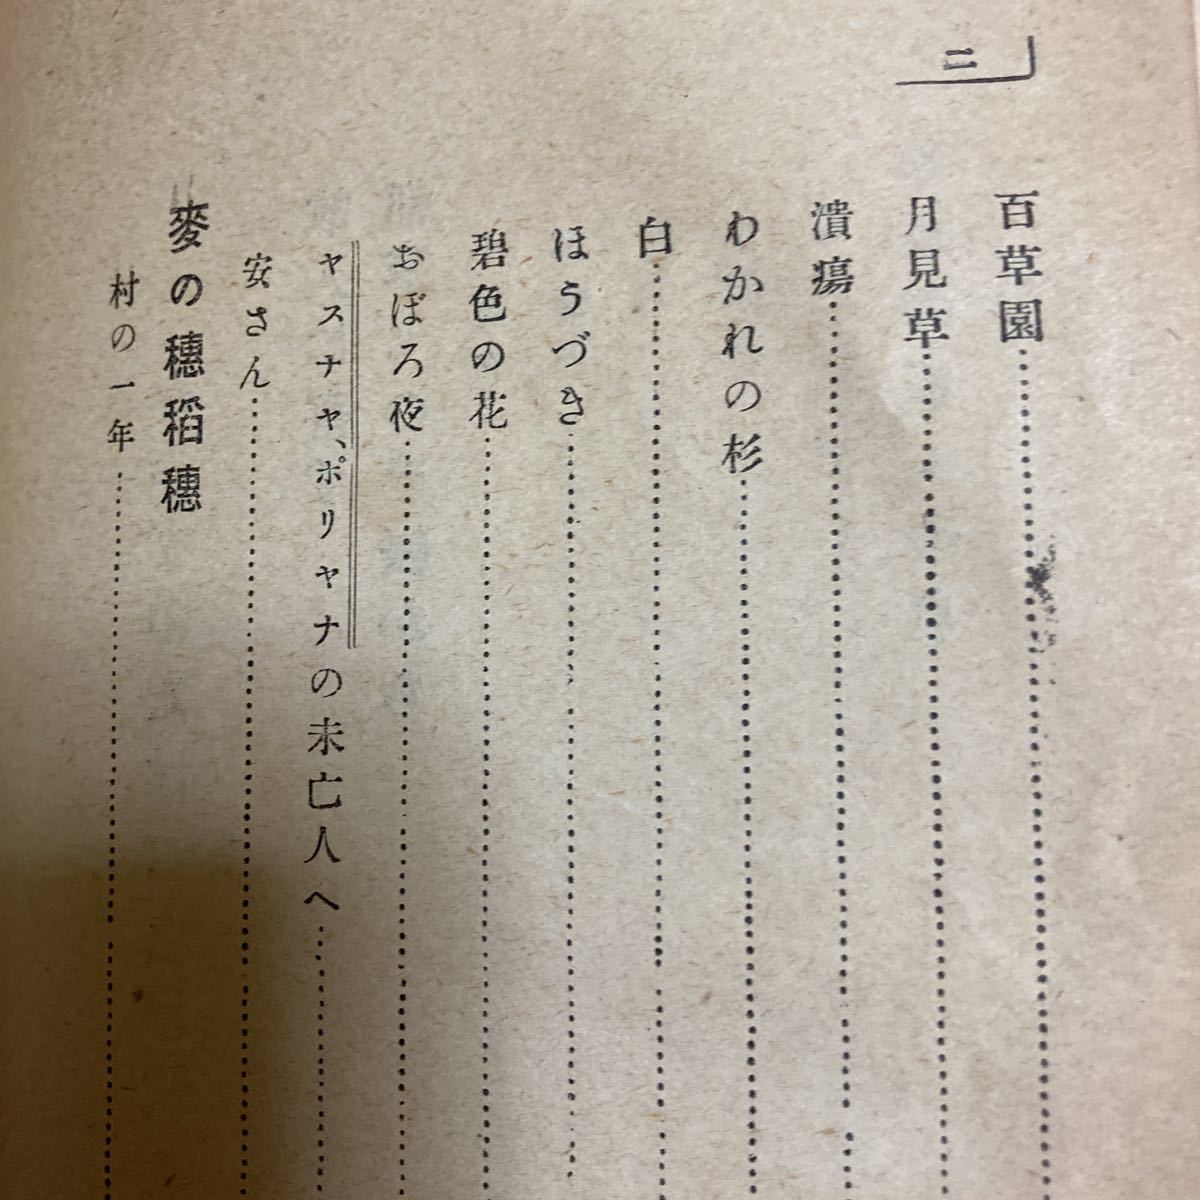 二
百草園
月見草
潰瘍
わかれの杉
白
ほうづき
碧色の花
おぼろ夜
ヤスナヤ、ポリヤナの未亡人へ
安さん
麥の穗稻穗
村の一年